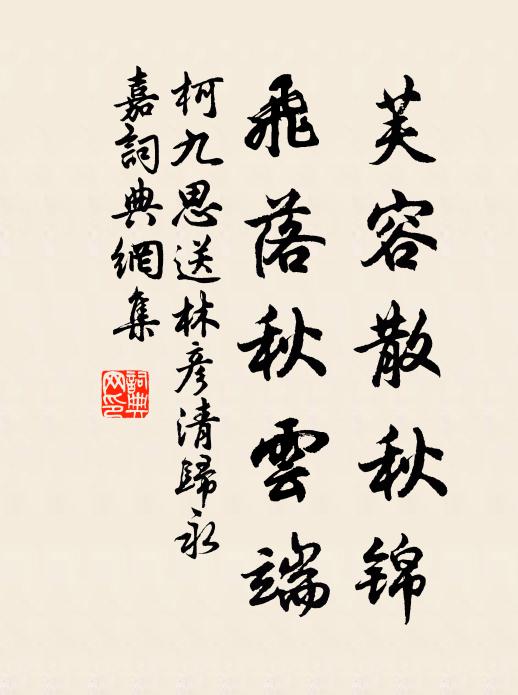 芙容散秋锦
飛落秋雲端
柯九思送林彦清歸永
嘉詞典網集
詞典
网印